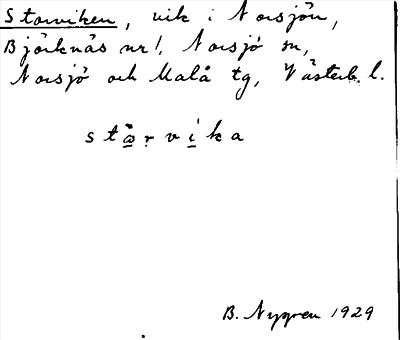 Storviken, vik i Norsjön,
Björknäs nr 1, Norsjö sn,
Norsjö och Malå tg, Västerb. l.
stọ̈rvika
B. Nygren 1929